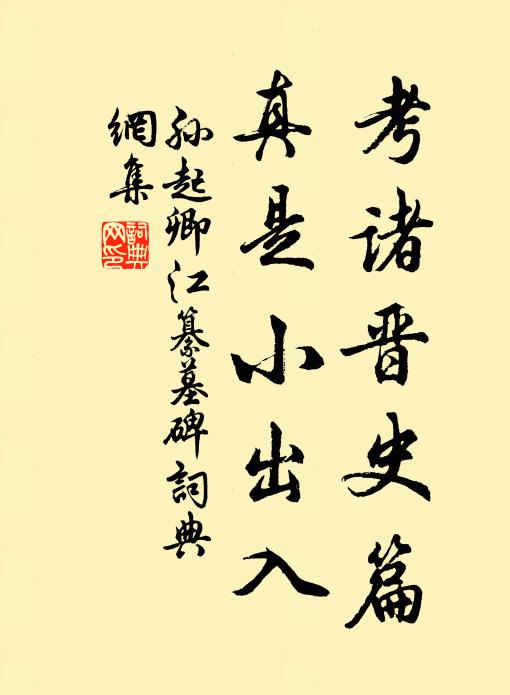 考诸晋史篇
真是小出入
孙起卿江纂墓碑词典
網集
詞典网印